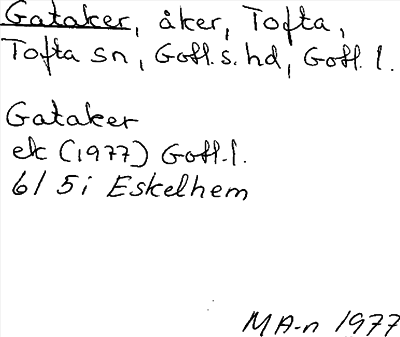 Gataker, åker, Tofta,
Tofta sn, Gotl. s. hd, Gotl. l.
Gataker
ek (1977) Gotl. l.
6I 5i Eskelhem
MA-n 1977